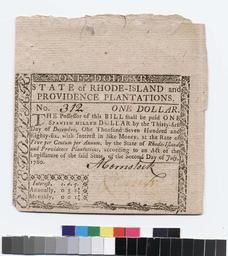 ONE DOLLAR.
STATE of RHODE-ISLAND and
PROVIDENCE PLANTATIONS.
No. 312 ONE DOLLAR.
THE Possessor of this BILL shall be paid ONE
SPANISH MILLED DOLLAR by the Thirty-first
Day of December, One Thousand Seven Hundred and
Eighty-six, with Interest in like Money, at the Rate of
Five per Centum per Annum, by the State of Rhode-Island
and Providence Plantations, according to an Act of the
Legislature of the said State, of the Second Day of July,
1780.
Interest.
Annually,
Monthly,